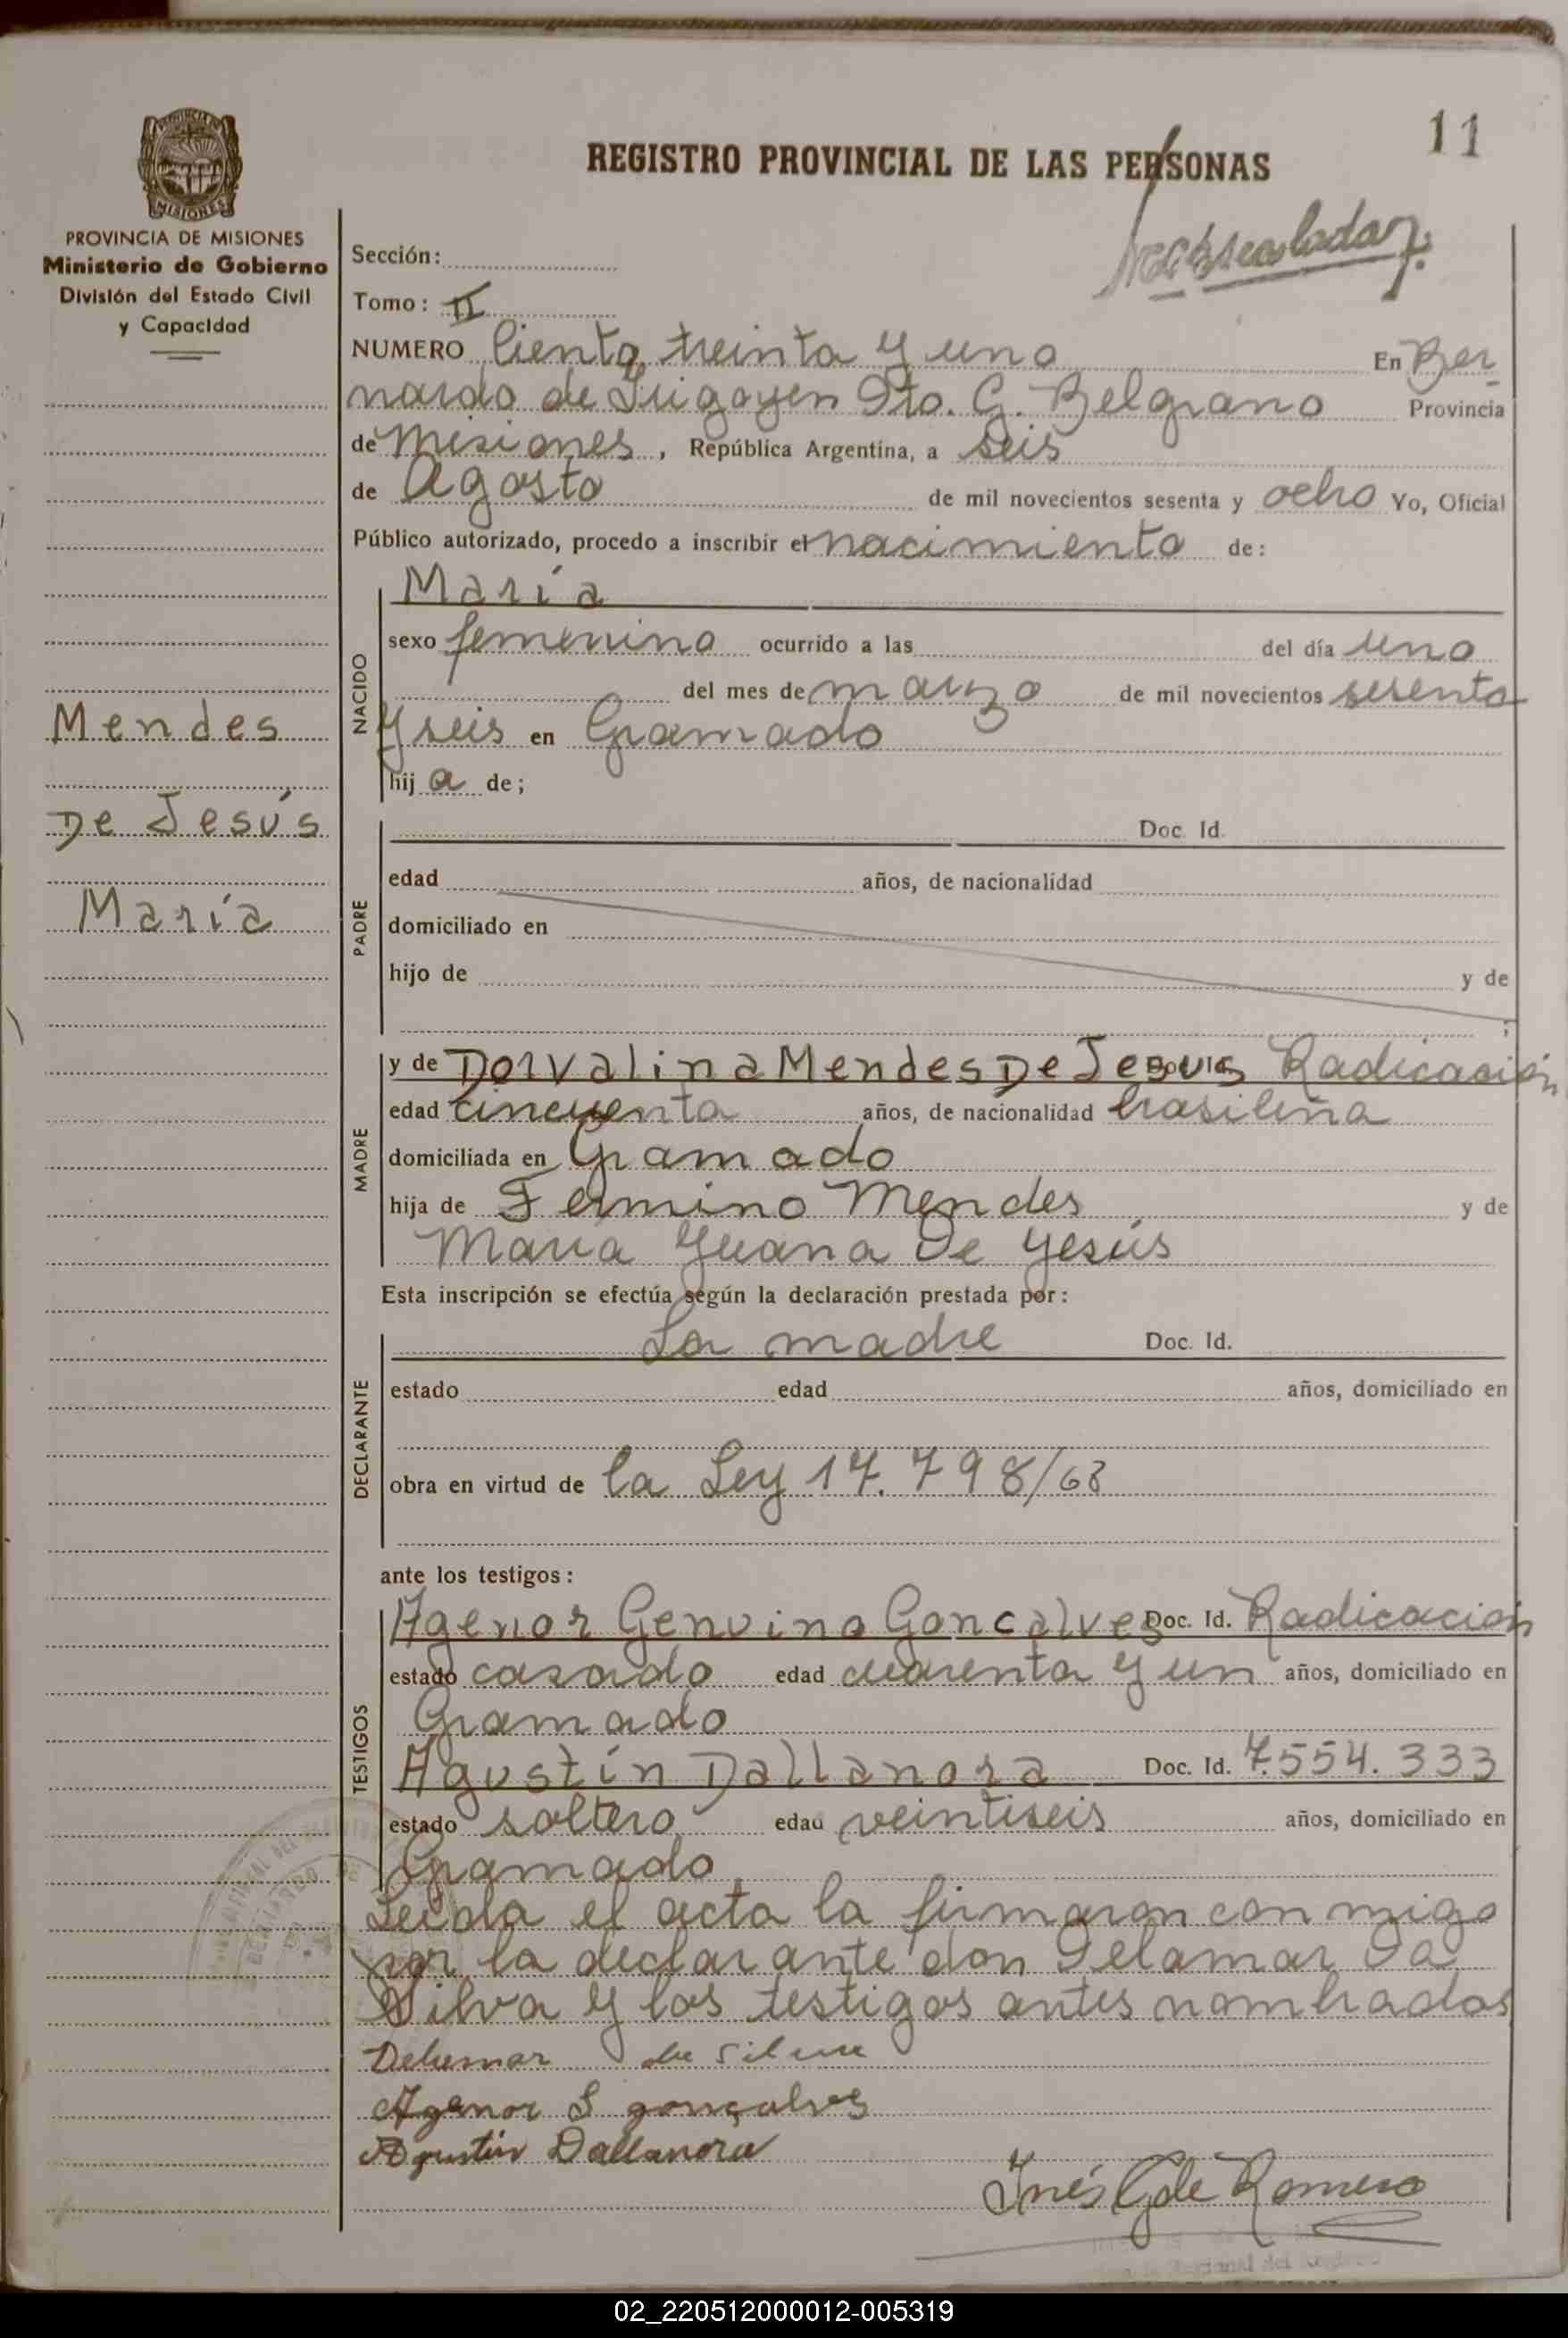 11
REGISTRO PROVINCIAL DE LAS PERSONAS
PROVINCIA DE
MISIONES
PROVINCIA DE MISIONES
Ministerio de Gobierno
División del Estado Civil
y Capacidad
Sección:
Tomo: II
NUMERO Ciento treinta y uno En Ber-
nardo de Irigoyen Dto. G. Belgrano Provincia
de Misiones, República Argentina, a seis
de Agosto de mil novecientos sesenta y ocho Yo, Oficial
Público autorizado, procedo a inscribir el nacimiento de:
Mendes
De Jesús
María
NACIDO
María
sexo femenino ocurrido a las del día uno
del mes de marzo de mil novecientos sesenta
y seis en Gramado
hija de;
PADRE
Doc. Id.
edad años, de nacionalidad
domiciliado en
hijo de y de
;
MADRE
y de Dorvalina Mendes De Jesus Radicación
edad cincuenta años, de nacionalidad brasileña
domiciliada en Gramado
hija de Fermino Mendes y de
María Yuana De Yesús
Esta inscripción se efectúa según la declaración prestada por:
DECLARANTE
La madre Doc. Id.
estado edad años, domiciliado en
obra en virtud de la Ley 17.798/68
ante los testigos:
TESTIGOS
Agenor Genuino Goncalves Doc. Id. Radicación
estado casado edad cuarenta y un años, domiciliado en
Gramado
Agustín Dallanora Doc. Id. 7.554.333
estado soltero edad veintiseis años, domiciliado en
Gramado
Leida el acta la firmaron con migo
por la declarante don Delamar Da
Silva y los testigos antes nombrados
Delemar da Silva
Agenor G gonçalves
Agustin Dallanora
Inés G de Romero
02_220512000012-005319